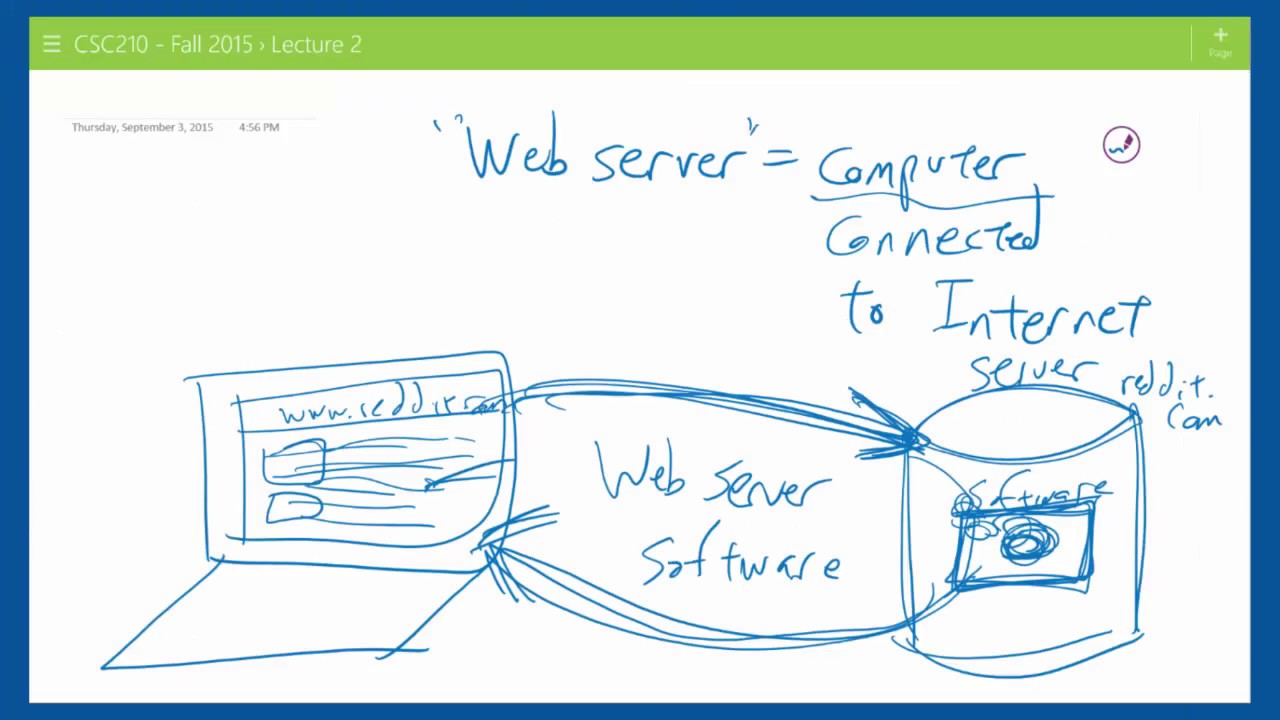 CSC210 - Fall 2015 › Lecture 2
Page
Thursday, September 3, 2015 4:56 PM
"Web server" = Computer
Connected
to Internet
server
reddit.
com
www.reddit.com
Web Server
Software
software